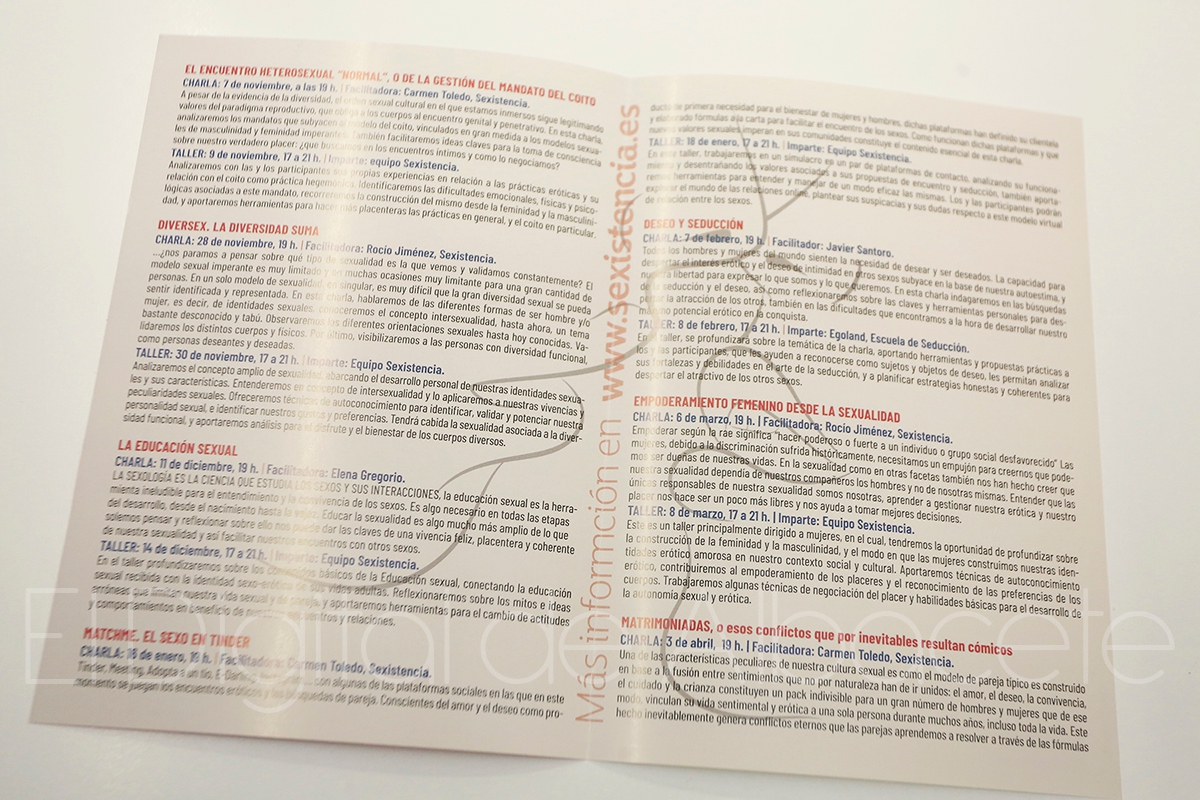 EL ENCUENTRO HETEROSEXUAL "NORMAL", O DE LA GESTIÓN DEL MANDATO DEL COITO
CHARLA: 7 de noviembre, a las 19 h. | Facilitadora: Carmen Toledo, Sexistencia.
A pesar de la evidencia de la diversidad, el orden sexual cultural en el que estamos inmersos sigue legitimando
valores del paradigma reproductivo, que obliga a los cuerpos al encuentro genital y penetrativo. En esta charla,
analizaremos los mandatos que subyacen al modelo del coito, vinculados en gran medida a los modelos sexua-
les de masculinidad y feminidad imperantes. También facilitaremos ideas claves para la toma de consciencia
sobre nuestro verdadero placer: ¿que buscamos en los encuentros íntimos y como lo negociamos?
TALLER: 9 de noviembre, 17 a 21 h. | Imparte: equipo Sexistencia.
Analizaremos con las y los participantes sus propias experiencias en relación a las prácticas eróticas y su
relación con el coito como práctica hegemónica. Identificaremos las dificultades emocionales, físicas y psico-
lógicas asociadas a este mandato, recorreremos la construcción del mismo desde la feminidad y la masculini-
dad, y aportaremos herramientas para hacer más placenteras las prácticas en general, y el coito en particular.
DIVERSEX. LA DIVERSIDAD SUMA
CHARLA: 28 de noviembre, 19 h. | Facilitadora: Rocío Jiménez, Sexistencia.
...¿nos paramos a pensar sobre qué tipo de sexualidad es la que vemos y validamos constantemente? El
modelo sexual imperante es muy limitado y en muchas ocasiones muy limitante para una gran cantidad de
personas. En un solo modelo de sexualidad, en singular, es muy difícil que la gran diversidad sexual se pueda
sentir identificada y representada. En esta charla, hablaremos de las diferentes formas de ser hombre y/o
mujer, es decir, de identidades sexuales, conoceremos el concepto intersexualidad, hasta ahora, un tema
bastante desconocido y tabú. Observaremos las diferentes orientaciones sexuales hasta hoy conocidas. Va-
lidaremos los distintos cuerpos y físicos. Por último, visibilizaremos a las personas con diversidad funcional,
como personas deseantes y deseadas.
TALLER: 30 de noviembre, 17 a 21 h. | Imparte: Equipo Sexistencia.
Analizaremos el concepto amplio de sexualidad, abarcando el desarrollo personal de nuestras identidades sexua-
les y sus características. Entenderemos en concepto de intersexualidad y lo aplicaremos a nuestras vivencias y
peculiaridades sexuales. Ofreceremos técnicas de autoconocimiento para identificar, validar y potenciar nuestra
personalidad sexual, e identificar nuestros gustos y preferencias. Tendrá cabida la sexualidad asociada a la diver-
sidad funcional, y aportaremos análisis para el disfrute y el bienestar de los cuerpos diversos.
LA EDUCACIÓN SEXUAL
CHARLA: 11 de diciembre, 19 h. | Facilitadora: Elena Gregorio.
LA SEXOLOGÍA ES LA CIENCIA QUE ESTUDIA LOS SEXOS Y SUS INTERACCIONES, la educación sexual es la herra-
mienta ineludible para el entendimiento y la convivencia de los sexos. Es algo necesario en todas las etapas
del desarrollo, desde el nacimiento hasta la vejez. Educar la sexualidad es algo mucho más amplio de lo que
solemos pensar y reflexionar sobre ello nos puede dar las claves de una vivencia feliz, placentera y coherente
de nuestra sexualidad y así facilitar nuestros encuentros con otros sexos.
TALLER: 14 de diciembre, 17 a 21 h. | Imparte: Equipo Sexistencia.
En el taller profundizaremos sobre los conceptos básicos de la Educación sexual, conectando la educación
sexual recibida con la identidad sexo-erótica de sus vidas adultas. Reflexionaremos sobre los mitos e ideas
erróneas que limitan nuestra vida sexual y de pareja, y aportaremos herramientas para el cambio de actitudes
y comportamientos en beneficio de nuestros encuentros y relaciones.
MATCHME. EL SEXO EN TINDER
CHARLA: 16 de enero, 19 h. | Facilitadora: Carmen Toledo, Sexistencia.
Tinder, Meeting, Adopta a un tío, E-Darling, son algunas de las plataformas sociales en las que en este
momento se juegan los encuentros eróticos y las búsquedas de pareja. Conscientes del amor y el deseo como pro-
Más información en www.sexistencia.es
ducto de primera necesidad para el bienestar de mujeres y hombres, dichas plataformas han definido su clientela
y elaborado fórmulas a la carta para facilitar el encuentro de los sexos. Como funcionan dichas plataformas y que
nuevos valores sexuales imperan en sus comunidades constituye el contenido esencial de esta charla.
TALLER: 18 de enero, 17 a 21 h. | Imparte: Equipo Sexistencia.
En este taller, trabajaremos en un simulacro en un par de plataformas de contacto, analizando su funciona-
miento y desentrañando los valores asociados a sus propuestas de encuentro y seducción, también aporta-
remos herramientas para entender y manejar de un modo eficaz las mismas. Los y las participantes podrán
explorar el mundo de las relaciones online, plantear sus suspicacias y sus dudas respecto a este modelo virtual
de relación entre los sexos.
DESEO Y SEDUCCIÓN
CHARLA: 7 de febrero, 19 h. | Facilitador: Javier Santoro.
Todos los hombres y mujeres del mundo sienten la necesidad de desear y ser deseados. La capacidad para
despertar el interés erótico y el deseo de intimidad en otros sexos subyace en la base de nuestra autoestima, y
nuestra libertad para expresar lo que somos y lo que queremos. En esta charla indagaremos en las búsquedas
de la seducción y el deseo, así como reflexionaremos sobre las claves y herramientas personales para des-
pertar la atracción de los otros, también en las dificultades que encontramos a la hora de desarrollar nuestro
máximo potencial erótico en la conquista.
TALLER: 8 de febrero, 17 a 21 h. | Imparte: Egoland, Escuela de Seducción.
En el taller, se profundizará sobre la temática de la charla, aportando herramientas y propuestas prácticas a
los y las participantes, que les ayuden a reconocerse como sujetos y objetos de deseo, les permitan analizar
sus fortalezas y debilidades en el arte de la seducción, y a planificar estrategias honestas y coherentes para
despertar el atractivo de los otros sexos.
EMPODERAMIENTO FEMENINO DESDE LA SEXUALIDAD
CHARLA: 6 de marzo, 19 h. | Facilitadora: Rocío Jiménez, Sexistencia.
Empoderar según la rae significa "hacer poderoso o fuerte a un individuo o grupo social desfavorecido" Las
mujeres, debido a la discriminación sufrida históricamente, necesitamos un empujón para creernos que pode-
mos ser dueñas de nuestras vidas. En la sexualidad como en otras facetas también nos han hecho creer que
nuestra sexualidad dependía de nuestros compañeros los hombres y no de nosotras mismas. Entender que las
únicas responsables de nuestra sexualidad somos nosotras, aprender a gestionar nuestra erótica y nuestro
placer nos hace ser un poco más libres y nos ayuda a tomar mejores decisiones.
TALLER: 8 de marzo, 17 a 21 h. | Imparte: Equipo Sexistencia.
Este es un taller principalmente dirigido a mujeres, en el cual, tendremos la oportunidad de profundizar sobre
la construcción de la feminidad y la masculinidad, y el modo en que las mujeres construimos nuestras iden-
tidades erótico amorosa en nuestro contexto social y cultural. Aportaremos técnicas de autoconocimiento
erótico, contribuiremos al empoderamiento de los placeres y el reconocimiento de las preferencias de los
cuerpos. Trabajaremos algunas técnicas de negociación del placer y habilidades básicas para el desarrollo de
la autonomía sexual y erótica.
MATRIMONIADAS, o esos conflictos que por inevitables resultan cómicos
CHARLA: 3 de abril, 19 h. | Facilitadora: Carmen Toledo, Sexistencia.
Una de las características peculiares de nuestra cultura sexual es como el modelo de pareja típico es construido
en base a la fusión entre sentimientos que no por naturaleza han de ir unidos: el amor, el deseo, la convivencia,
el cuidado y la crianza constituyen un pack indivisible para un gran número de hombres y mujeres que de ese
modo, vinculan su vida sentimental y erótica a una sola persona durante muchos años, incluso toda la vida. Este
hecho inevitablemente genera conflictos eternos que las parejas aprendemos a resolver a través de las fórmulas
El digital de Albacete